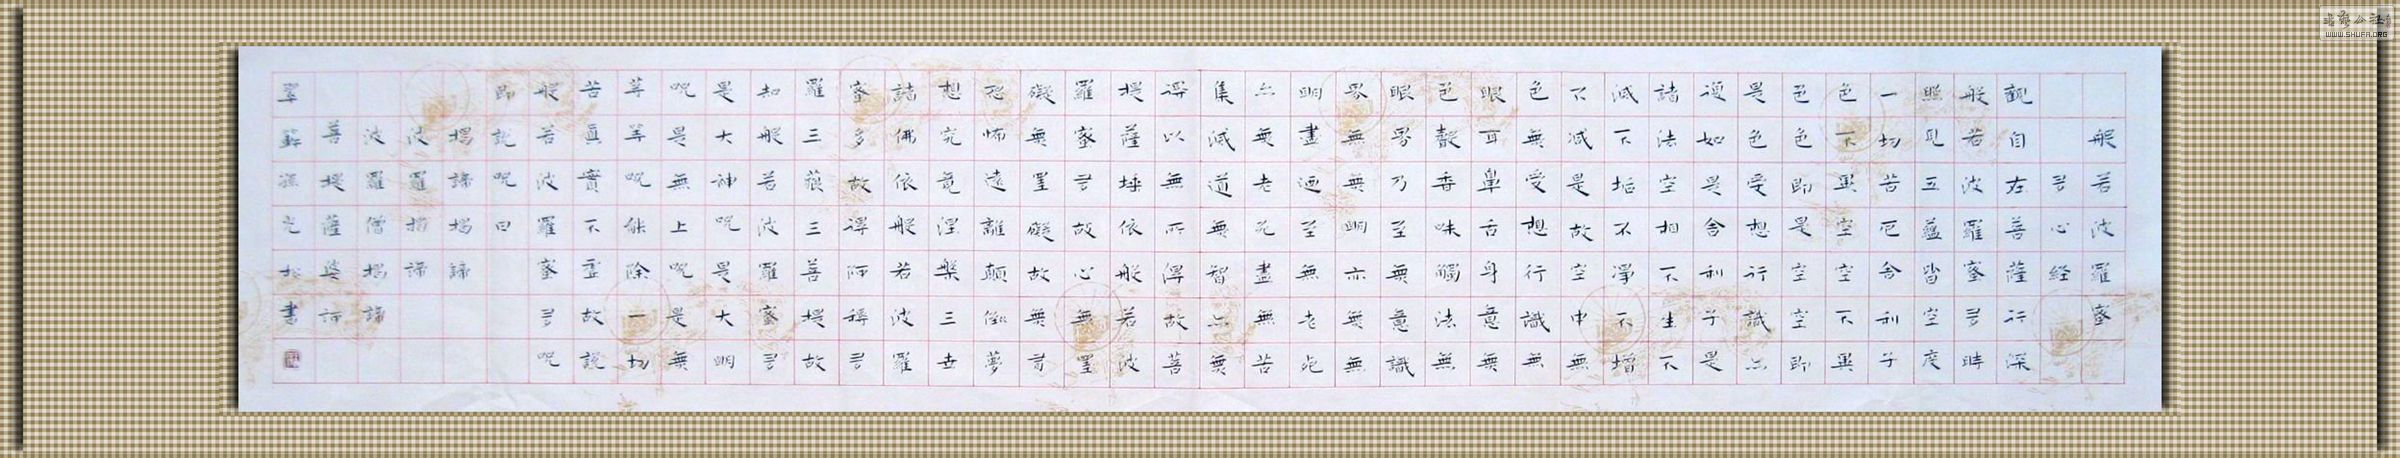 般若波羅蜜
多心経
觀自在菩薩行深
般若波羅蜜多時
照見五蘊皆空度
一切苦厄舍利子
色不異空空不異
色色即是空空即
是色受想行識亦
復如是舍利子是
諸法空相不生不
滅不垢不淨不增
不減是故空中無
色無受想行識無
眼耳鼻舌身意無
色聲香味觸法無
眼界乃至無意識
界無無明亦無無
明盡迺至無老死
亦無老死盡無苦
集滅道無智亦無
得以無所得故菩
提薩埵依般若波
羅蜜多故心無罣
礙無罣礙故無有
恐怖遠離顛倒夢
想究竟涅槃三世
諸佛依般若波羅
蜜多故得阿耨多
羅三藐三菩提故
知般若波羅蜜多
是大神咒是大明
咒是無上咒是無
等等咒能除一切
苦眞實不虛故説
般若波羅蜜多咒
即説咒曰
揭諦揭諦
波羅揭諦
波羅僧揭諦
菩提薩婆訶
書
WWW.SHUFA.ORG